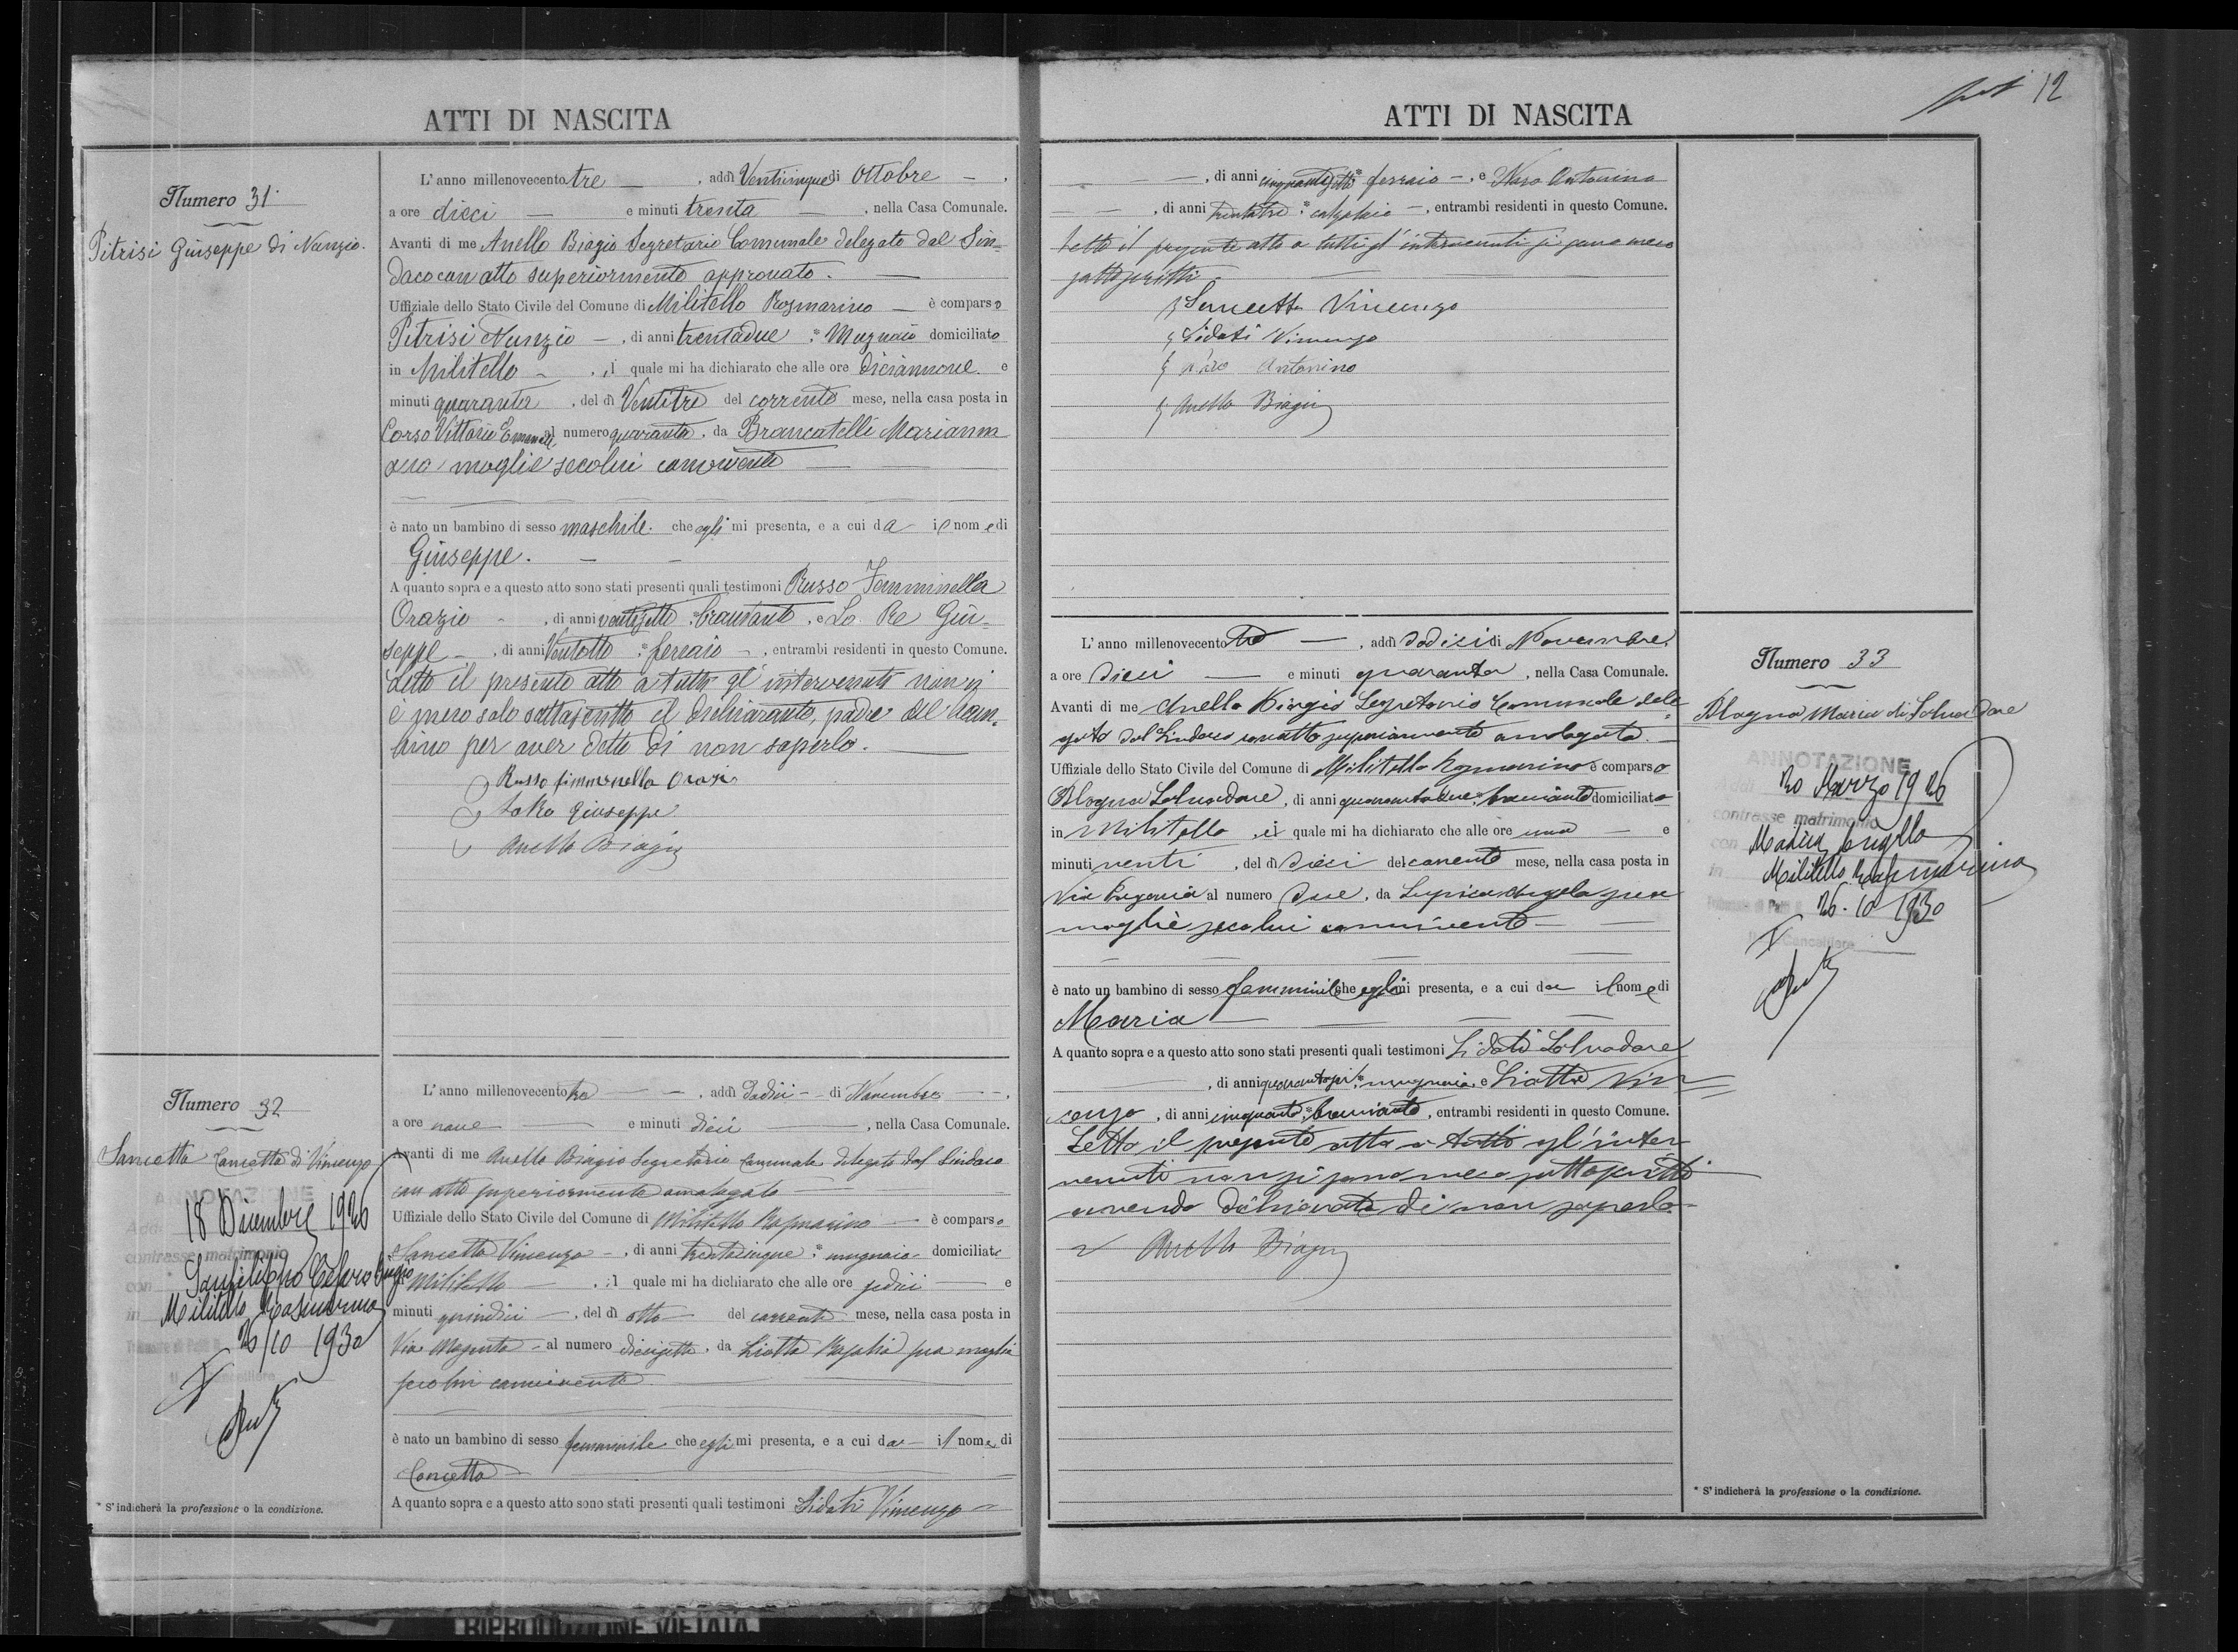 ATTI DI NASCITA
Numero 31
Pitrisi Giuseppe di Nunzio.
L'anno millenovecentotre, addì Venticinque di Ottobre,
a ore dieci e minuti trenta, nella Casa Comunale.
Avanti di me Anello Biagio Segretario Comunale delegato dal Sin-
daco con atto superiormente approvato.
Uffiziale dello Stato Civile del Comune di Militello Rosmarino è comparso
Pitrisi Nunzio, di anni trentadue, * Mugnaio domiciliato
in Militello, il quale mi ha dichiarato che alle ore diciannove e
minuti quaranta, del dì Ventitre del corrente mese, nella casa posta in
Corso Vittorio Emanuele al numero quaranta, da Brancatelli Marianna
sua moglie secolui convivente
è nato un bambino di sesso maschile che egli mi presenta, e a cui da il nome di
Giuseppe.
A quanto sopra e a questo atto sono stati presenti quali testimoni Russo Femminella
Orazio, di anni ventisette, * bracciante, e Lo Re Giu-
seppe, di anni Ventotto, * ferraio, entrambi residenti in questo Comune.
Letto il presente atto a tutti gl'intervenuti non si
è meco solo sottoscritto il dichiarante, padre del bam-
bino per aver detto di non saperlo.
Russo Orazio
Lo Re Giuseppe
Anello Biagio
Numero 32
Lancetta Concetta di Vincenzo
ANNOTAZIONE
Addì 18 Dicembre 1926
contrasse matrimonio
con Sanfilippo Calogero
in Militello Rosmarino
26/10 1930
Il Cancelliere
L'anno millenovecentotre, addì Dodici di Novembre,
a ore nove e minuti dieci, nella Casa Comunale.
Avanti di me Anello Biagio Segretario Comunale delegato dal Sindaco
con atto superiormente omologato
Uffiziale dello Stato Civile del Comune di Militello Rosmarino è comparso
Lancetta Vincenzo, di anni trentacinque, * mugnaio domiciliato
in Militello, il quale mi ha dichiarato che alle ore sedici e
minuti quindici, del dì otto del corrente mese, nella casa posta in
Via Magenta al numero diecisette, da Liotta Rosalia sua moglie
secolui convivente
è nato un bambino di sesso femminile che egli mi presenta, e a cui da il nome di
Concetta
A quanto sopra e a questo atto sono stati presenti quali testimoni Lidati Vincenzo
* S'indicherà la professione o la condizione.
12
ATTI DI NASCITA
, di anni cinquantasette * ferraio, e Naro Antonino
, di anni trentatre * calzolaio, entrambi residenti in questo Comune.
Letto il presente atto a tutti gl'intervenuti si sono meco
sottoscritti
Lancetta Vincenzo
Lidati Vincenzo
Naro Antonino
Anello Biagio
L'anno millenovecentotre, addì Dodici di Novembre,
a ore Dieci e minuti quaranta, nella Casa Comunale.
Avanti di me Anello Biagio Segretario Comunale dele-
gato dal Sindaco con atto superiormente omologato
Uffiziale dello Stato Civile del Comune di Militello Rosmarino è comparso
Blogna Salvadore, di anni quarantadue, * bracciante domiciliato
in Militello, il quale mi ha dichiarato che alle ore una e
minuti venti, del dì Dieci del corrente mese, nella casa posta in
Via al numero Due, da Lupica Angela sua
moglie secolui convivente
è nato un bambino di sesso femminile che egli mi presenta, e a cui da il nome di
Maria
A quanto sopra e a questo atto sono stati presenti quali testimoni Lidati Salvadore
, di anni quarantasei, * mugnaio, e Liotta Vin-
cenzo, di anni cinquanta, * bracciante, entrambi residenti in questo Comune.
Letto il presente atto a tutti gl'inter-
venuti non si sono meco sottoscritti
avendo dichiarato di non saperlo
Anello Biagio
Numero 33
Blogna Maria di Salvadore
ANNOTAZIONE
Addì 20 Marzo 1926
contrasse matrimonio
con
in Militello Rosmarino
26-10 1930
Il Cancelliere
* S'indicherà la professione o la condizione.
RIPRODUZIONE VIETATA